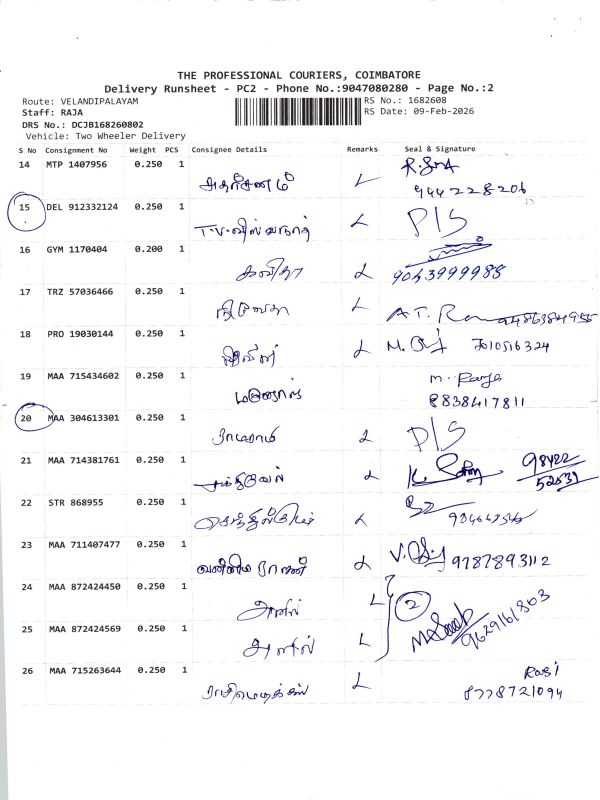 THE PROFESSIONAL COURIERS, COIMBATORE
Delivery Runsheet - PC2 - Phone No.:9047080280 - Page No.:2
Route: VELANDIPALAYAM
RS No.: 1682608
Staff: RAJA
RS Date: 09-Feb-2026
DRS No.: DCJB168260802
Vehicle: Two Wheeler Delivery
S No Consignment No Weight PCS Consignee Details Remarks Seal & Signature
14 MTP 1407956 0.250 1
L 944228206
15 DEL 912332124 0.250 1
T.V. விஸ்வநாத் L P/S
16 GYM 1170404 0.200 1
கவிதா L 9043999988
17 TRZ 57036466 0.250 1
நிவேதா L A.T.
18 PRO 19030144 0.250 1
L M.
19 MAA 715434602 0.250 1
மனோஜ் m. Raja
8838417811
20 MAA 304613301 0.250 1
ராஜாராம் L P/S
21 MAA 714381761 0.250 1
சக்திவேல் L K. 98422
52531
22 STR 868955 0.250 1
செந்தில்குமார் L
23 MAA 711407477 0.250 1
L V. 9787893112
24 MAA 872424450 0.250 1
அனில் L 2
25 MAA 872424569 0.250 1
அனில் L 9629161803
26 MAA 715263644 0.250 1
ராசிமெடிக்கல் L Rasi
8778721094